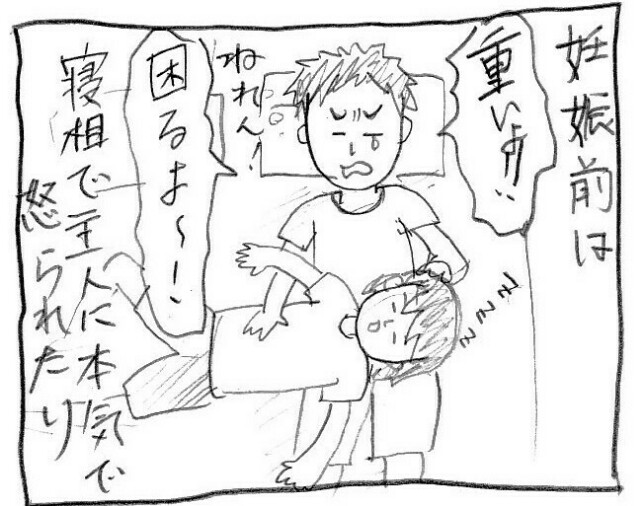 妊娠前は
重いよ!!
ねれん!
困るよ〜!
寝相で主人に本気で
怒られたり
zzz